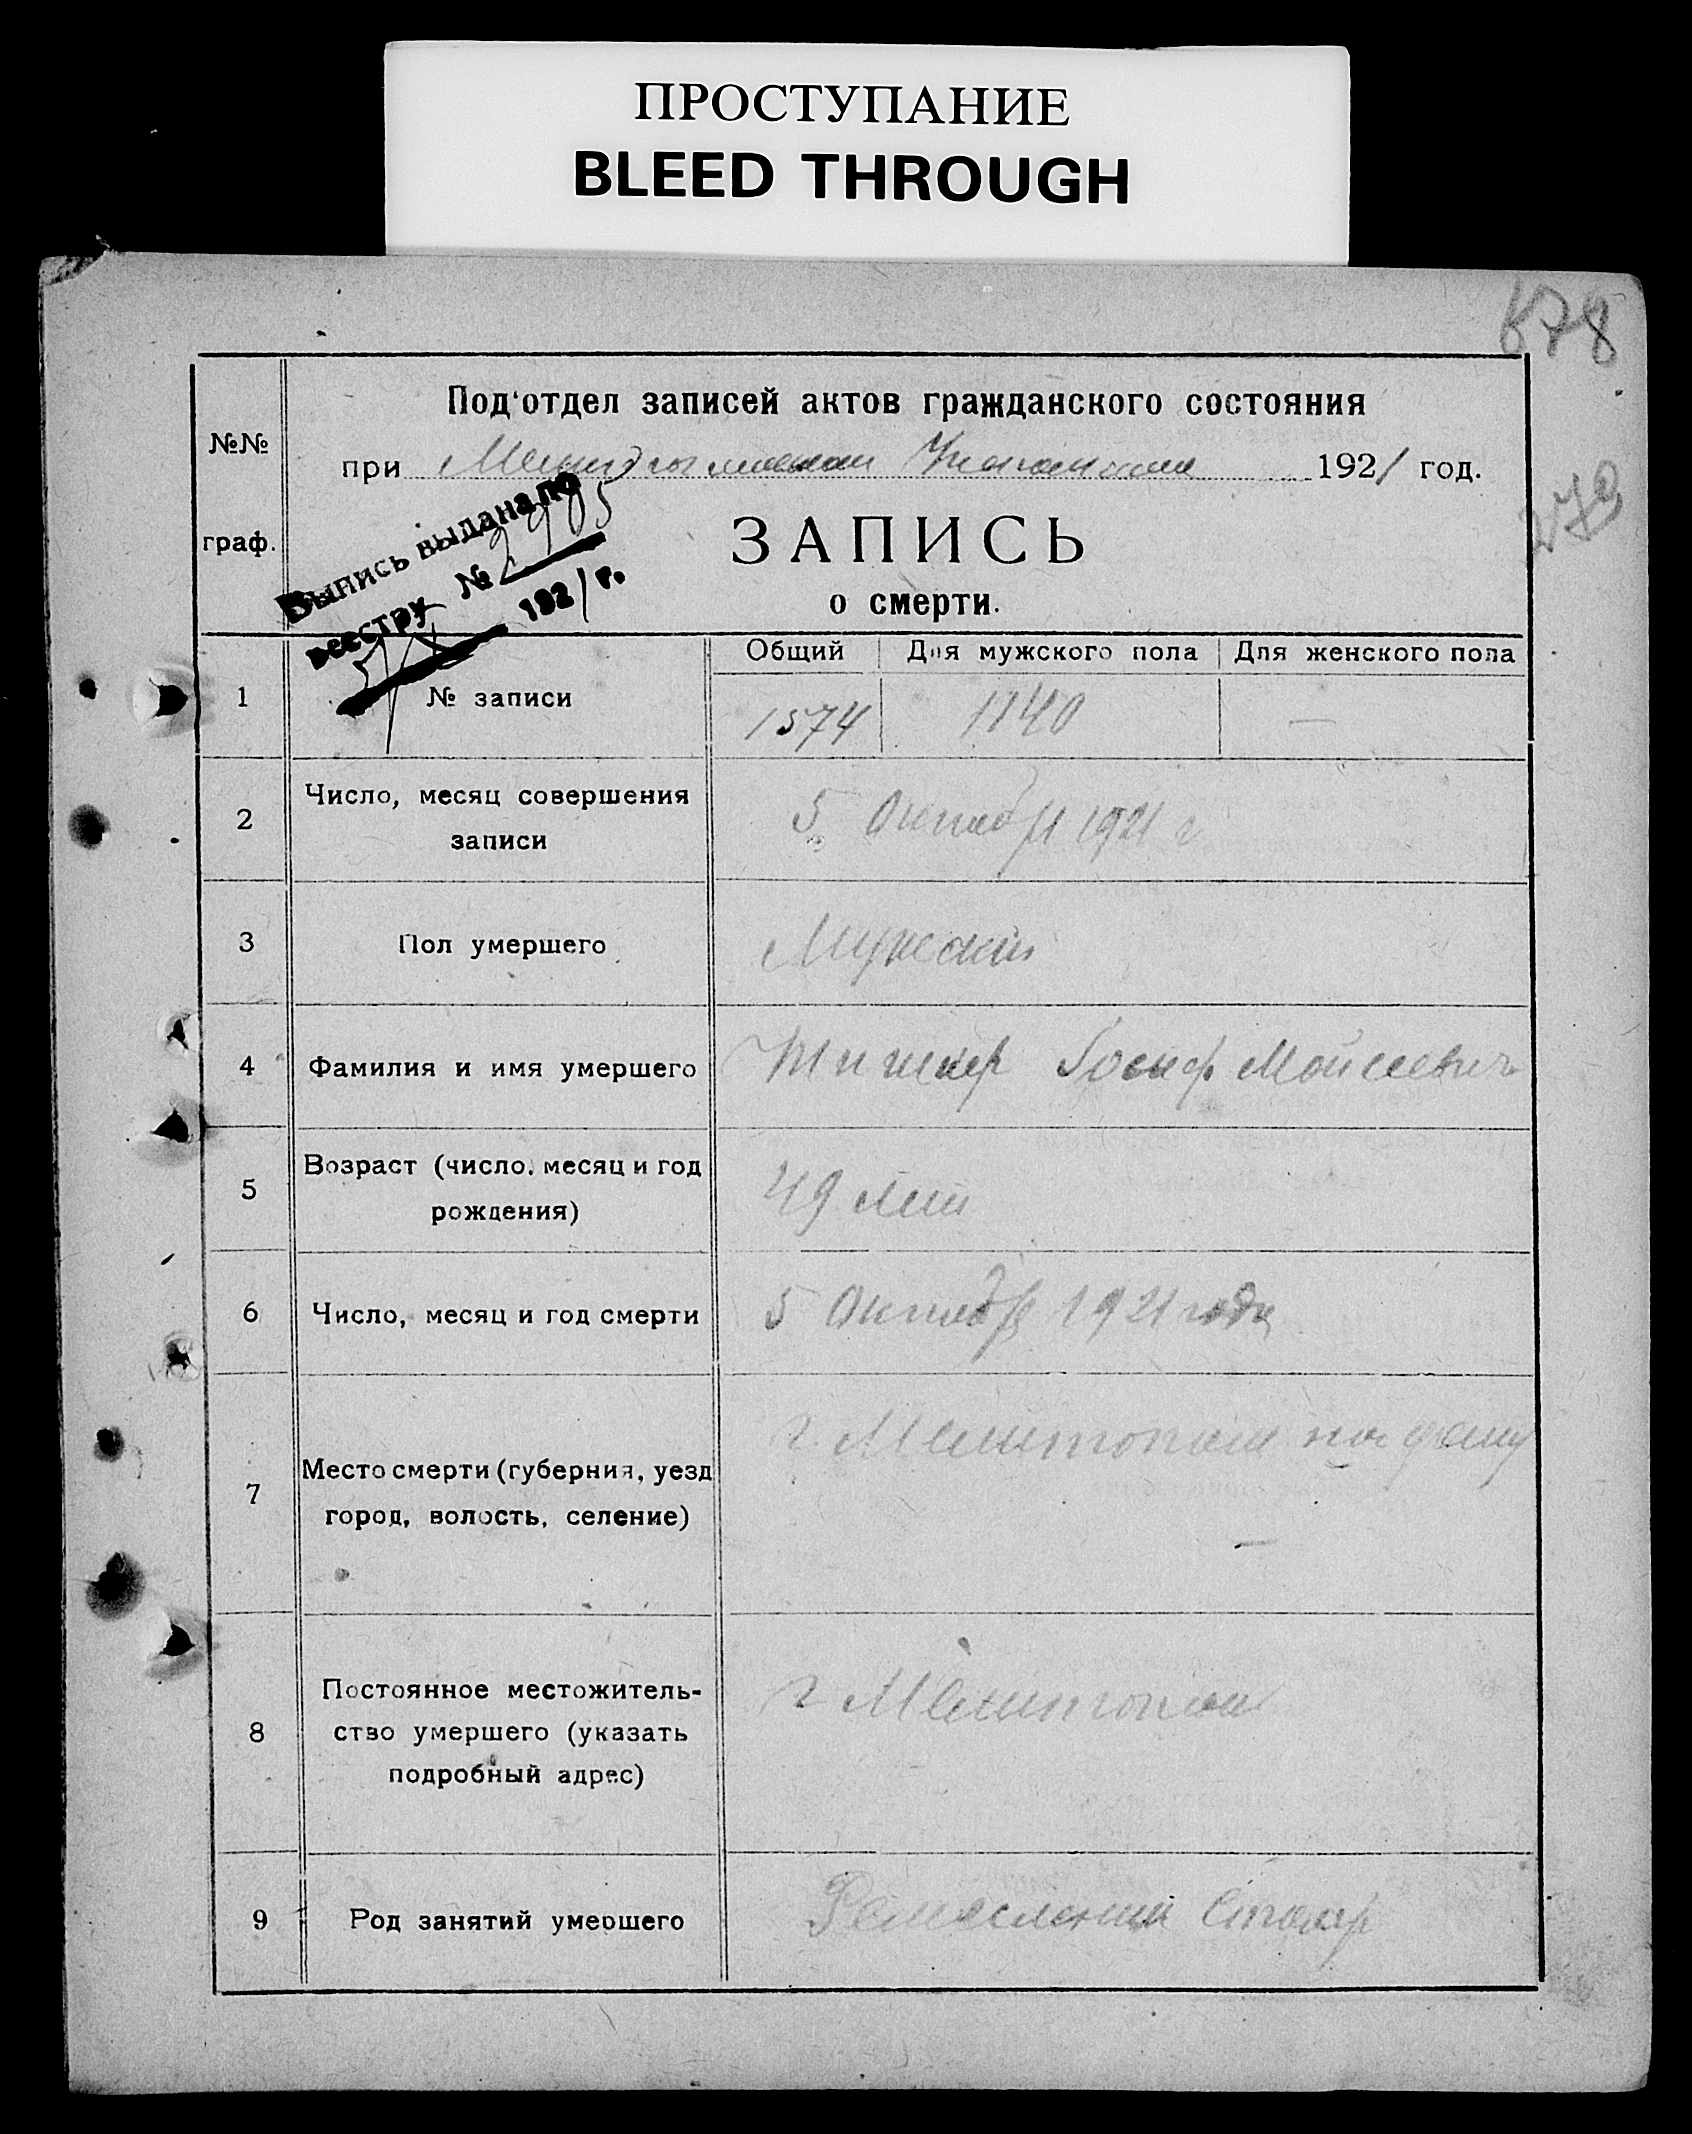 ПРОСТУПАНИЕ
BLEED THROUGH
678
279
Под'отдел записей актов гражданского состояния
№№
граф.
при 1921 год.
Выпись выдана по
реестру № 2985
5/X 1921 г.
ЗАПИСЬ
о смерти.
Общий Для мужского пола Для женского пола
1 № записи 1574 1140 —
2 Число, месяц совершения
записи
5 Октября 1921 г
3 Пол умершего Мужской
4 Фамилия и имя умершего Иосиф Мойсеевич
5 Возраст (число, месяц и год
рождения)
49 лет
6 Число, месяц и год смерти 5 Октября 1921 года
7 Место смерти (губерния, уезд
город, волость, селение)
г. Мелитополь на дому
8 Постоянное местожитель-
ство умершего (указать
подробный адрес)
г Мелитополь
9 Род занятий умершего Столяр